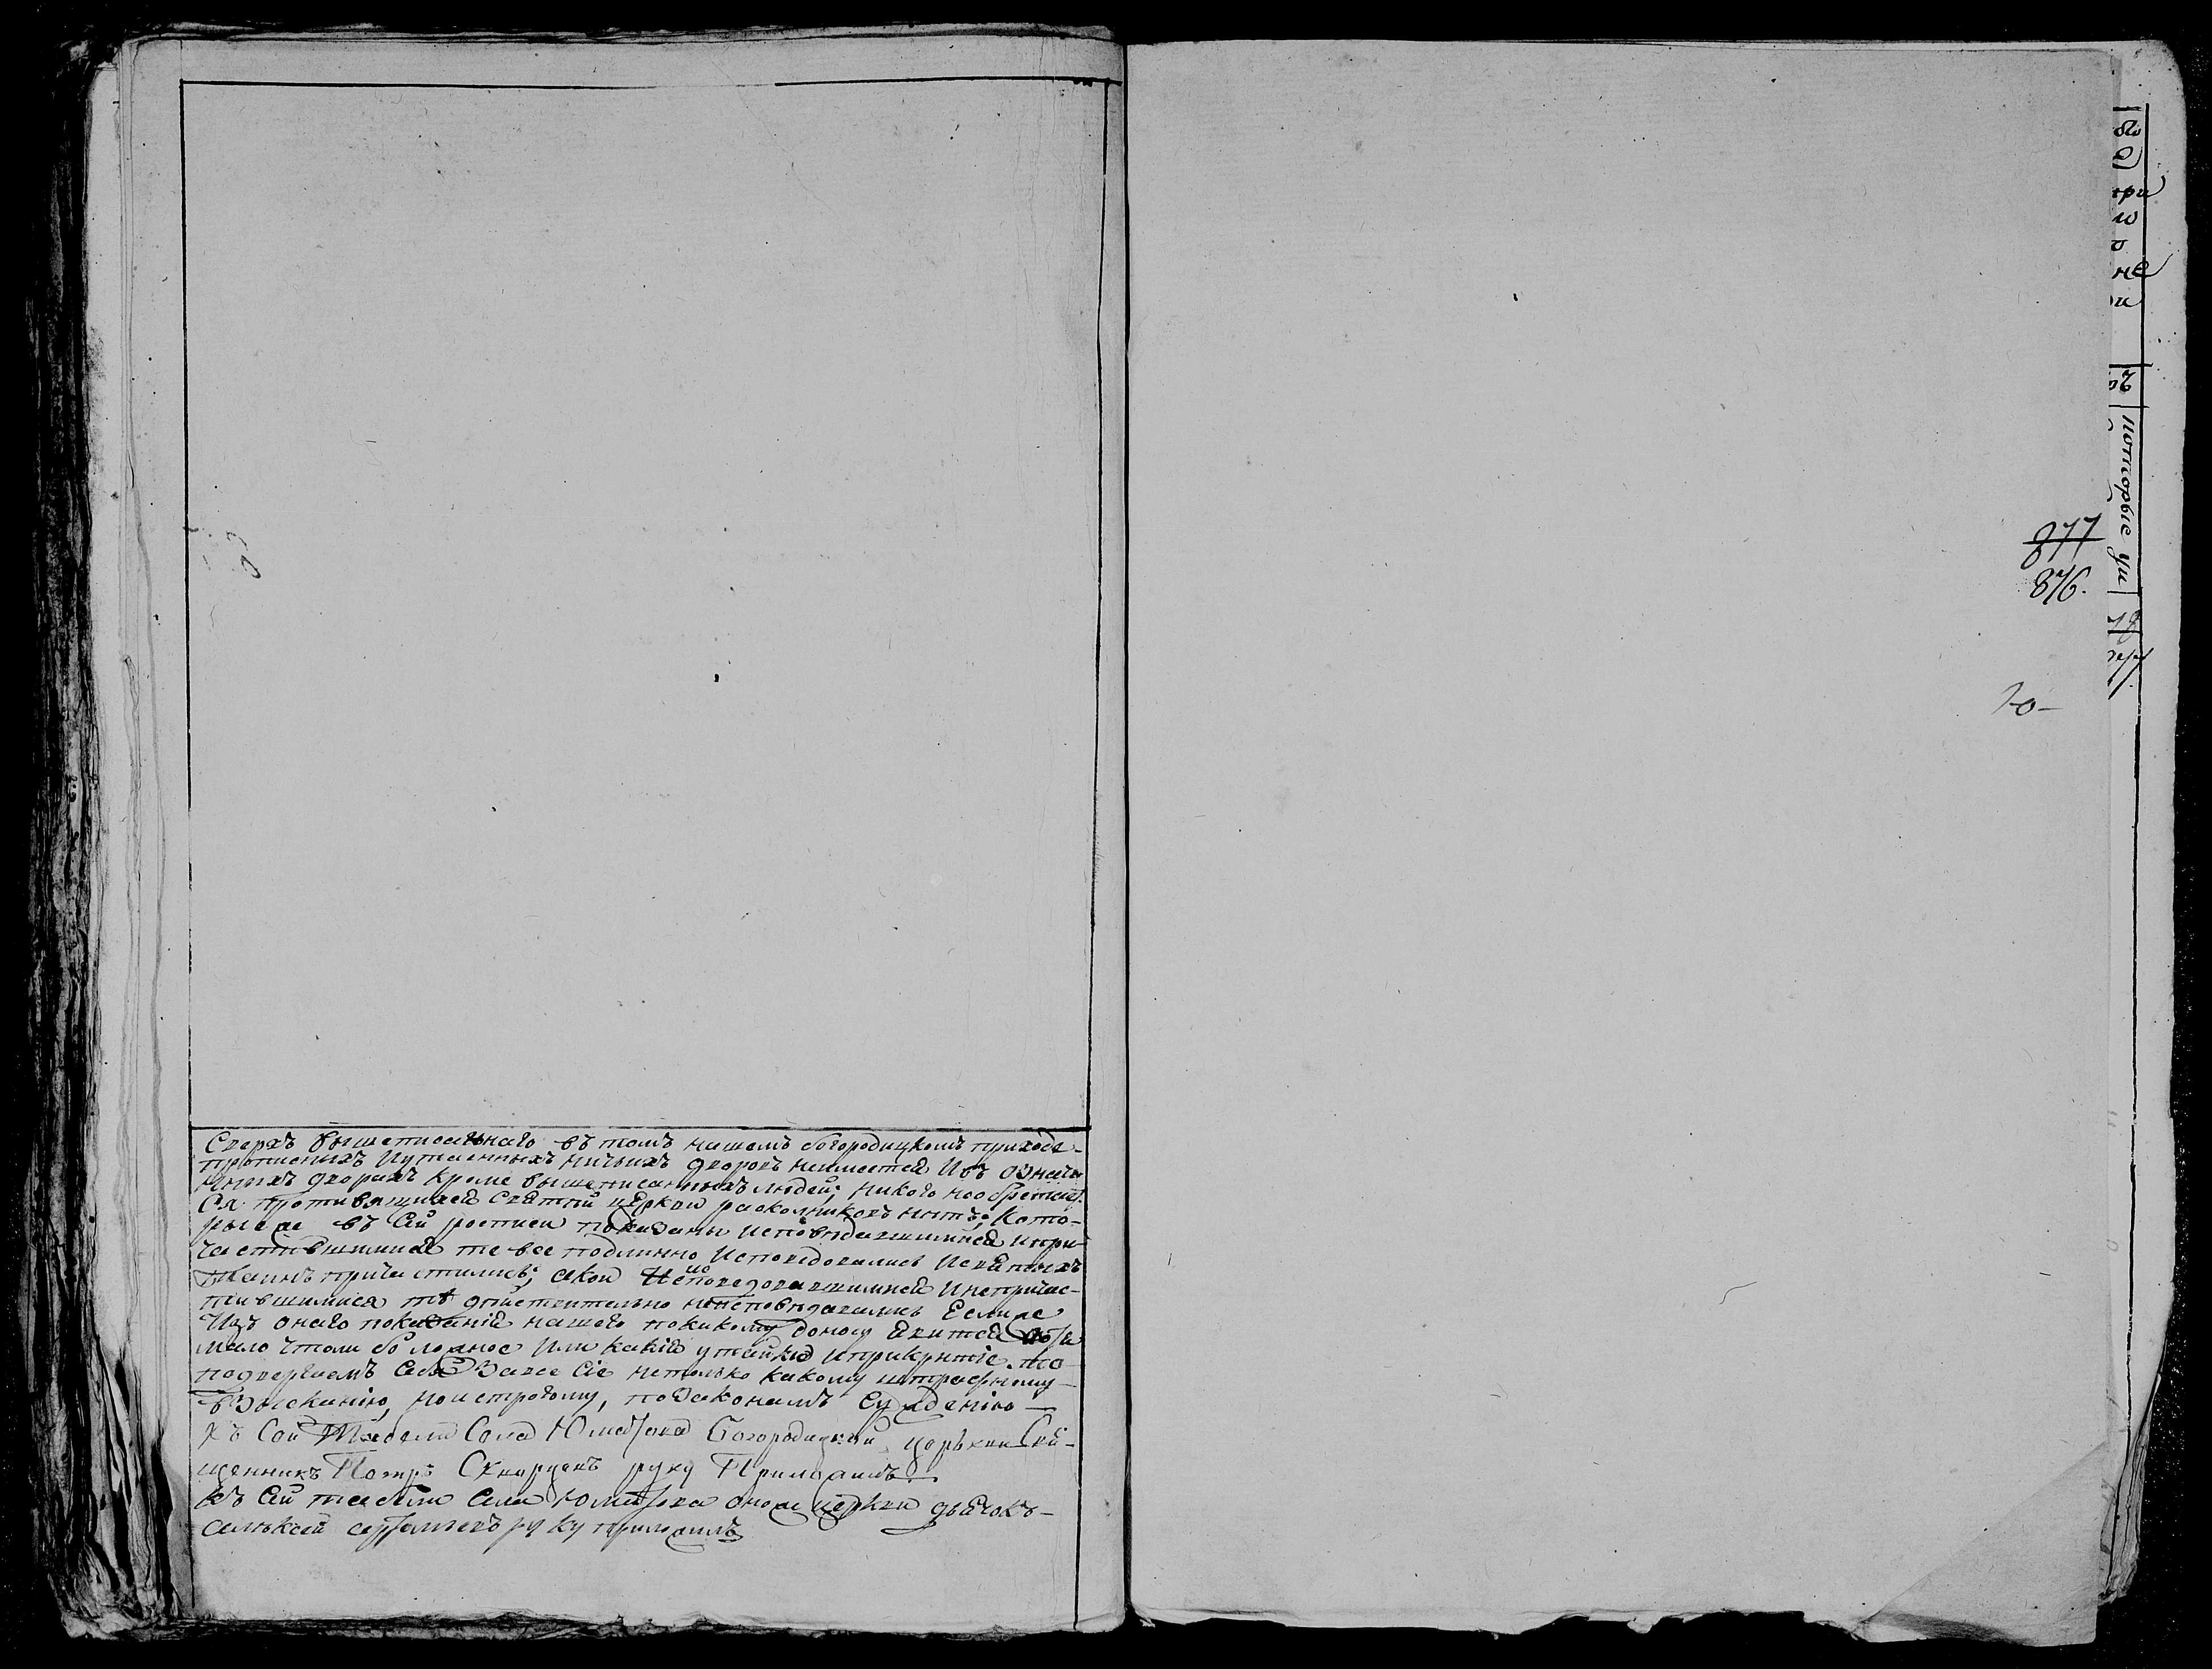 Сверхъ вышеписаннаго въ томъ нашемъ богородицкомъ приходе
прописныхъ И утаенныхъ ничьихъ дворовъ неимеется И въ означе
нныхъ дворахъ кроме вышеписанныхъ людей; никого необретает
ся противящихся святой церкви раскольниковъ нетъ; Кото-
рые же въ сей росписи показаны исповедавшимися и при-
частившимися те все подлинно исповедовались И святыхъ
таинъ причастились; а кои не исповедовавшимися И непричас-
тившимися те действительно неисповедовались Ежели же
Изъ онаго показания нашего по какому доносу явится
мало что либо ложное Или какия утайка и прикрытие. то
подвергаемъ себя За все сие нетолько какому штрафному
взысканию, но и строгому, по законамъ суждению
Къ сей табели Села Юматова Богородицкой церкви Свя-
щенникъ Петръ Скворцовъ руку Приложилъ
Къ сей табели села Юматова оной же церкви дьячокъ
руку приложилъ
877
876.
ри
не
и
которые